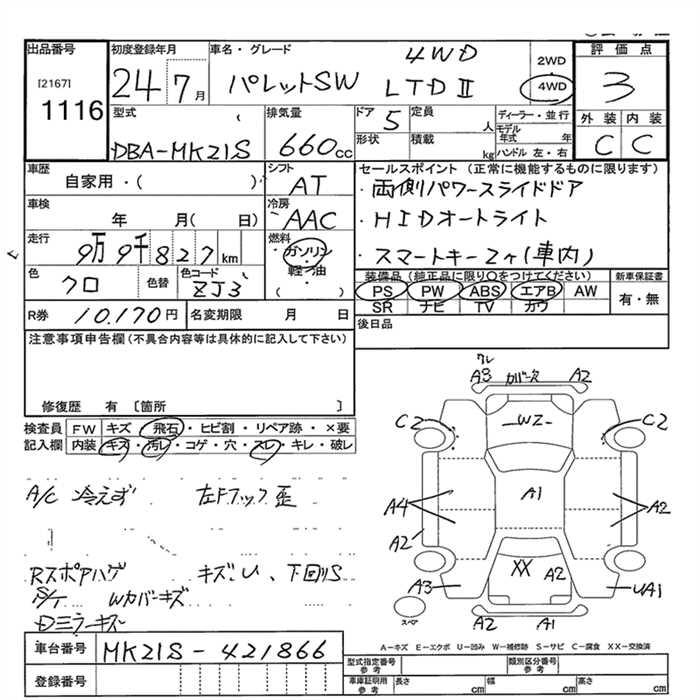 出品番号
[2167]
1116
初度登録年月
24 7月
車名・グレード
パレットSW 4WD LTDⅡ
2WD
4WD
評価点
3
外装 内装
C C
型式
DBA-MK21S
排気量
660cc
ドア 5
定員 人
形状
積載 kg
ディーラー・並行
モデル年式 年
ハンドル 左・右
車歴
自家用・( )
シフト
AT
車検
年 月( 日)
冷房
AAC
走行
9万9千827km
燃料
ガソリン
・
軽油
色
クロ
色替
色コード
ZJ3
R券 10,170円
名変期限 月 日
セールスポイント(正常に機能するものに限ります)
・両側パワースライドドア
・HIDオートライト
・スマートキー2ヶ(車内)
装備品(純正品に限り○をつけてください)
PS PW ABS エアB AW
SR ナビ TV カワ
新車保証書
有・無
後日品
注意事項申告欄(不具合内容等は具体的に記入して下さい)
修復歴 有 〔箇所 〕
検査員記入欄
FW キズ・飛石・ヒビ割・リペア跡・×要
内装 キズ・汚レ・コゲ・穴・スレ・キレ・破レ
A/C 冷えず 左Fフック歪
Rスポアハゲ キズ、U、下回りS
Wカバーキズ
ミラーキズ
ワレ
A3 カバー欠 A2
C2 C2
W2
A1
A4 A2
A2
XX A2
A3 UA1
スペア
A2 A1
A-キズ E-エクボ U-凹み W-補修跡 S-サビ C-腐食 XX-交換済
車台番号 MK21S-421866
登録番号
型式指定番号 参考
類別区分番号 参考
車庫証明用 参考
長さ cm
幅 cm
高さ cm